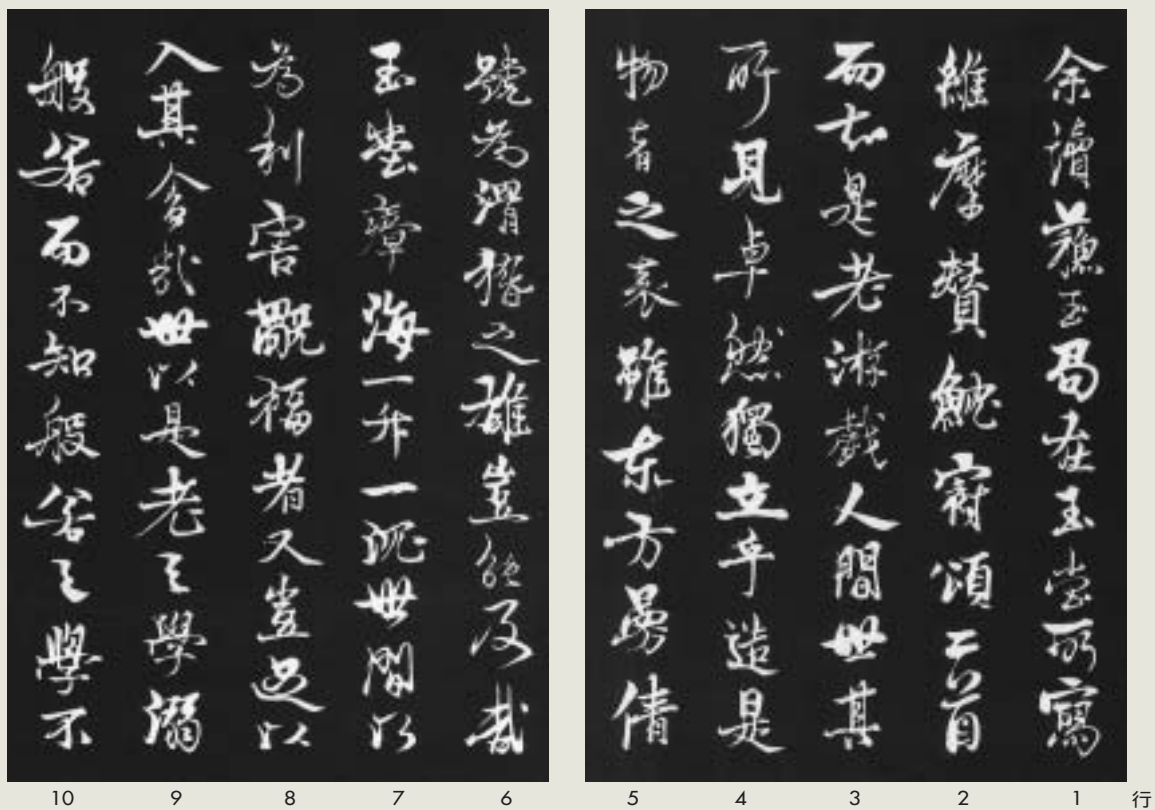 余讀蘇玉局在玉堂所寫
維摩贊魫冠頌二首
而知是老游戲人間世其
所見卓然獨立乎造是
物者之表雖東方曼倩
號為滑稽之雄豈能及哉
玉堂瘴海一升一沉世間以
為利害旤福者又豈足以
入其舍哉世以是老之學溺
般若而不知般若之學不
10 9 8 7 6 5 4 3 2 1 行